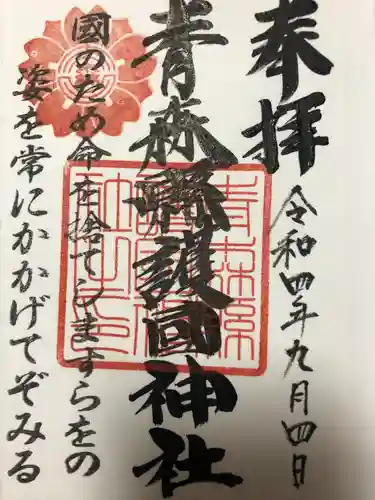 奉拝
令和四年九月四日
青森縣護國神社
國のため命を捨てしますらをの
姿を常にかかげてぞみる
青森縣護國神社之印